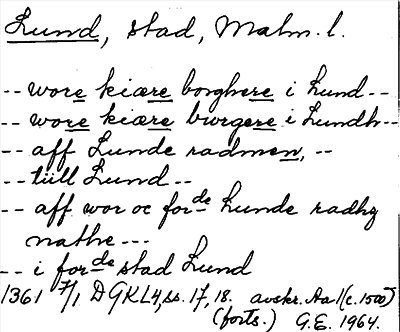 Lund, stad, Malm. l.
-- wore kiære borghere i Lund --
-- wore kiære burgere i Lundh --
-- aff Lunde radmen, --
-- tüll Lund --
-- aff wor oc forde Lunde radhz
nathe ---
-- i forde stad Lund
1361 7/1 DGKL4, ss. 17, 18. avskr. Aa1 (c. 1500)
(forts.) G.E. 1964.